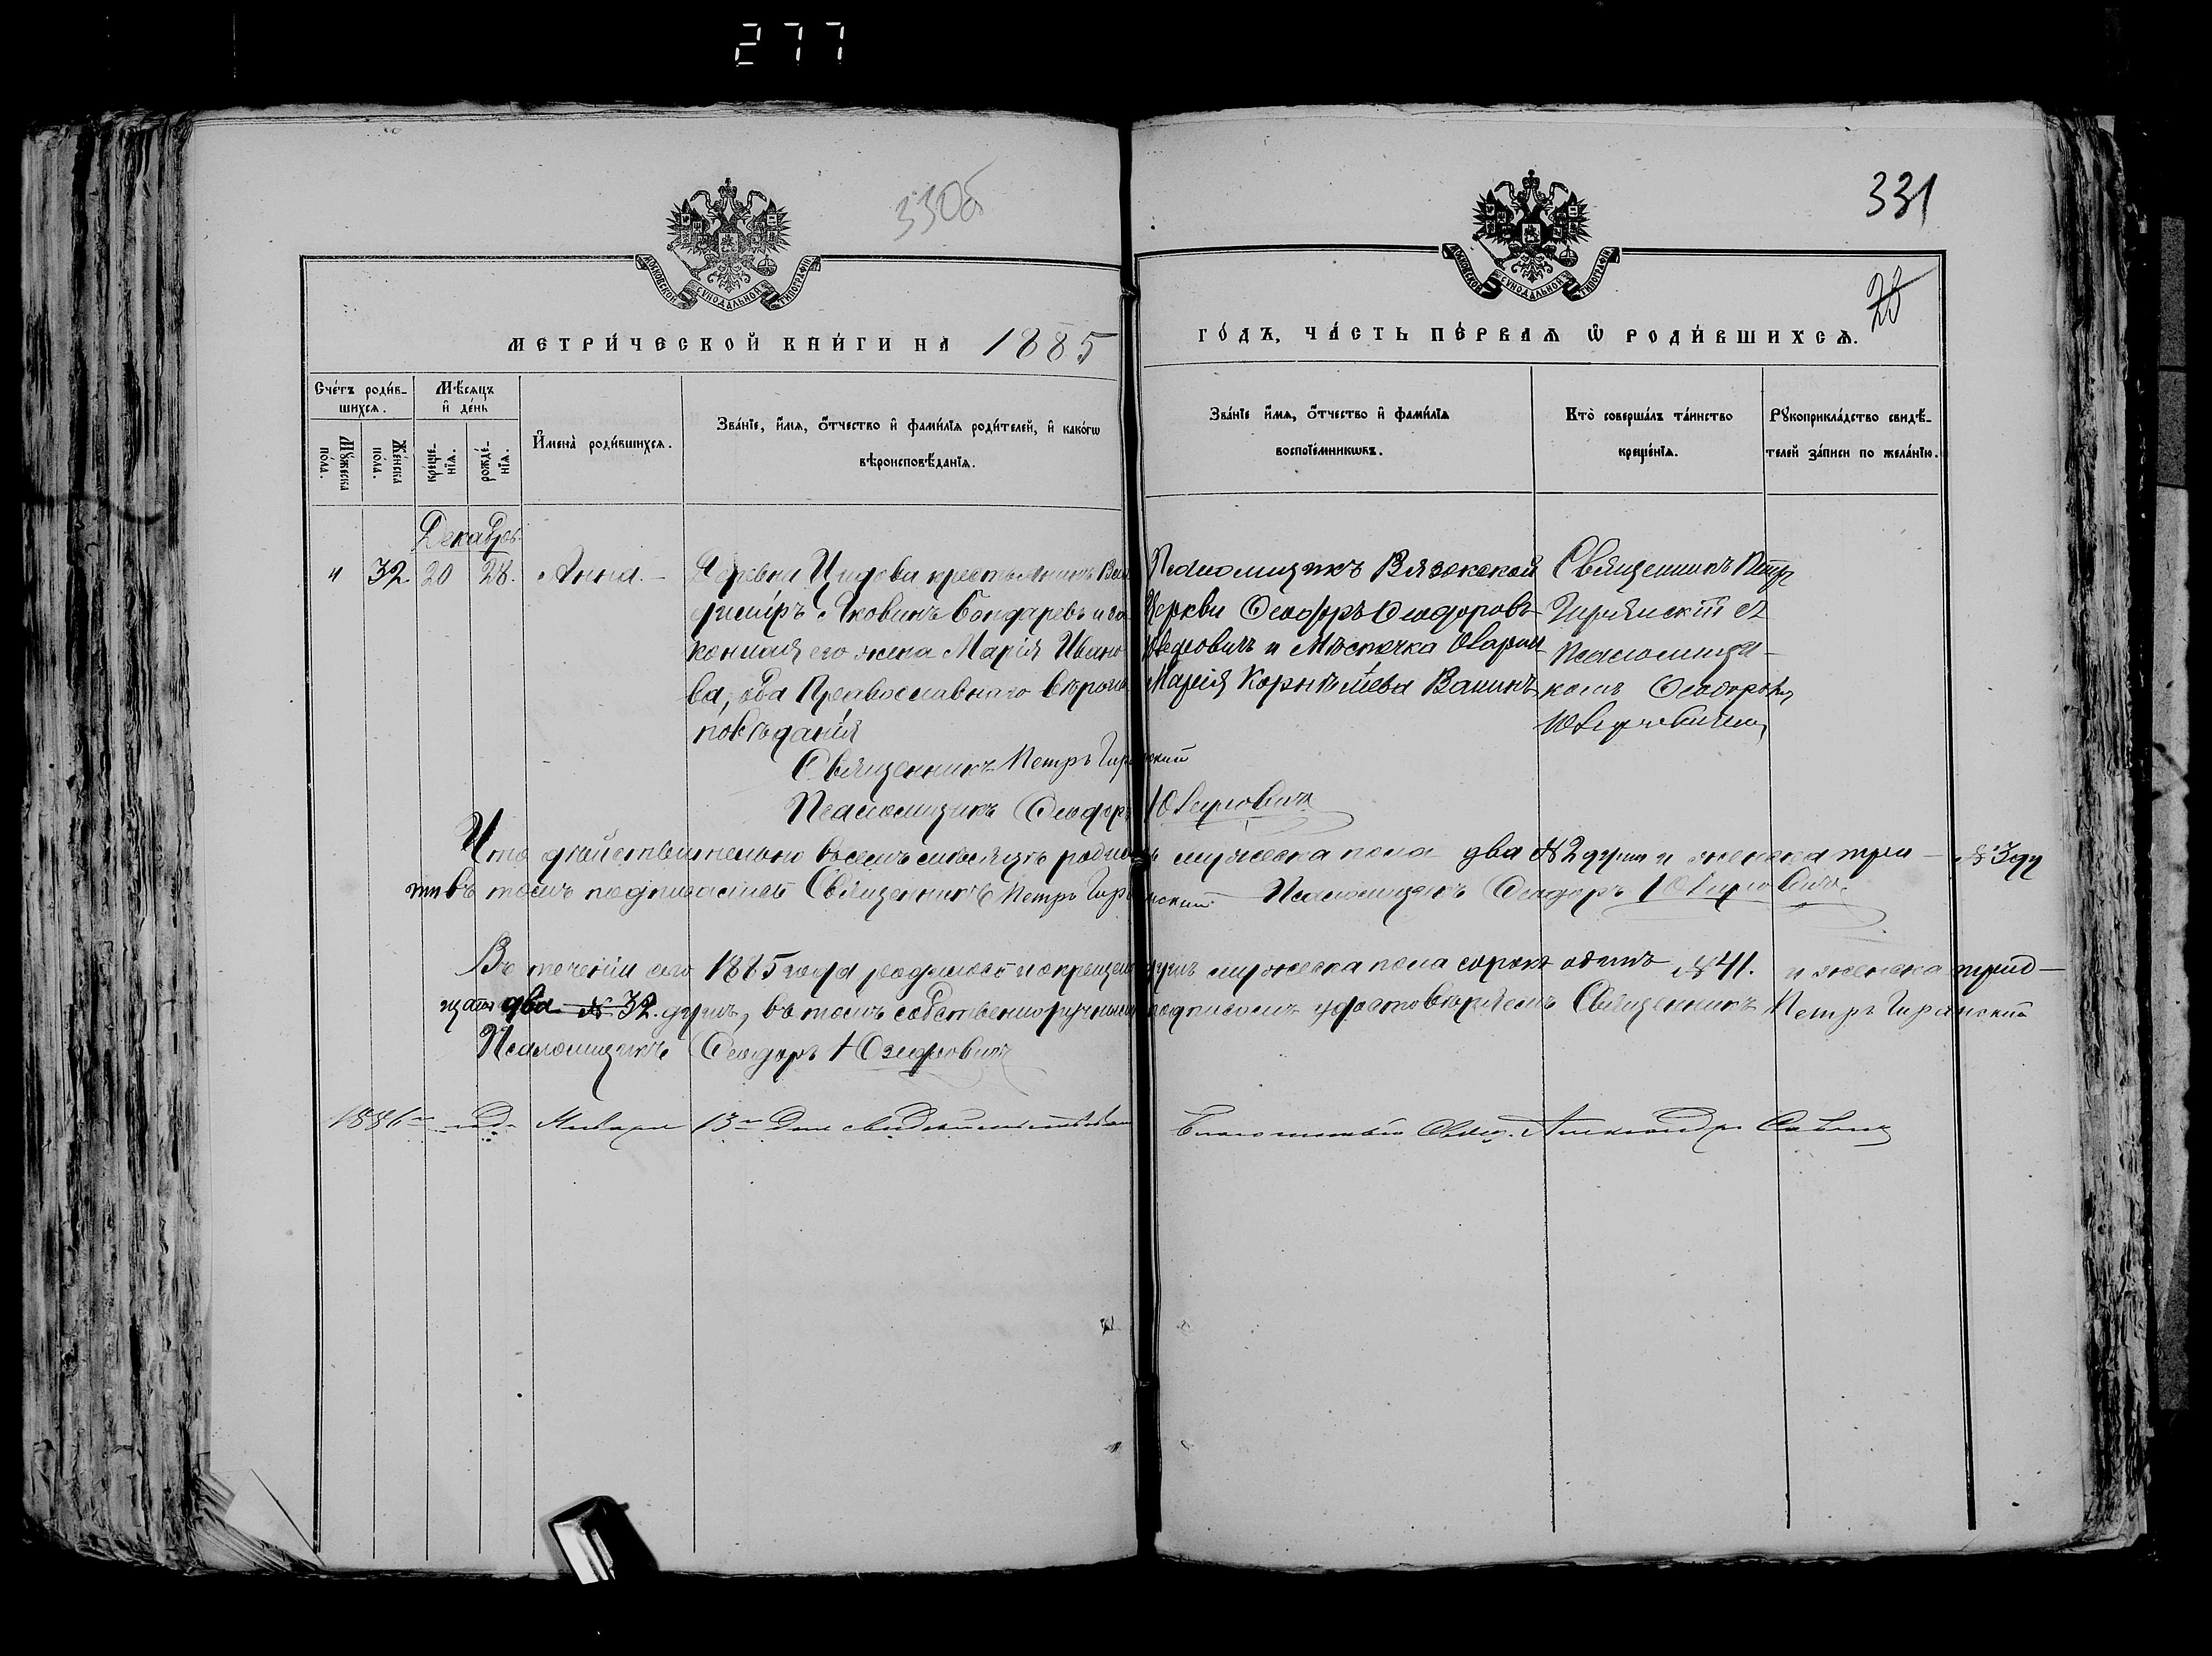 277
330б
331
28
МОСКОВСКОЙ СѴНОДАЛЬНОЙ ТИПОГРАФІИ
МОСКОВСКОЙ СѴНОДАЛЬНОЙ ТИПОГРАФІИ
МЕТРИ́ЧЕСКОЙ КНИ́ГИ НА 1885 ГО́ДЪ, ЧА́СТЬ ПЕ́РВАѦ Ѡ҆ РОДИ́ВШИХСѦ.
Сче́тъ роди́в-
шихсѧ.
Мꙋ́жеска по́ла.
Же́нска по́ла.
Мѣ́сѧцъ и҆ де́нь
креще́-нїѧ.
рожде́-нїѧ.
И҆мена̀ роди́вшихсѧ.
Зва́нїе, и҆́мѧ, ѻ҆́тчество и҆ фами́лїѧ роди́телей, и҆ како́гѡ
вѣроисповѣ́данїѧ.
Зва́нїе и҆́мѧ, ѻ҆́тчество и҆ фами́лїѧ
воспрїе́мникѡвъ.
Кто̀ соверша́лъ та́инство
креще́нїѧ.
Рꙋкоприкла́дство свидѣ́-
телей за́писи по жела́нїю.
Декабрь
" 32 20 28. Анна. —
Деревни крестьянинъ
Яковинъ Бондаревъ и за
конная его жена Марія Ивано
ва, оба Православнаго вѣроис
повѣданія
Псаломщикъ Вязокской
Церкви Ѳеодоръ Ѳеодоровъ
и Мѣстечка
Марія Корнѣйева
Священникъ Петр
съ
Псаломщи-
комъ Ѳеодоромъ
Юзефовичемъ
Священникъ Петръ
Псаломщикъ Ѳеодоръ Юзефовичъ
Что дѣйствительно въ семъ мѣсяцѣ родилось мужеска пола два № 2 души и женска три — № 3 ду
ши въ томъ подписались Священникъ Петръ Псаломщикъ Ѳеодоръ Юзефовичъ
Въ теченіи сего 1885 года родилось и окрещено душъ мужеска пола сорокъ одинъ № 41. и женска трид-
цать два № 32. душъ, въ томъ собственноручнымъ подписомъ удостовѣряемъ Священникъ Петръ
Псаломщикъ Ѳеодоръ Юзефовичъ
1886 года Января 13 дня свидѣтельствовалъ Благочинный Свящ. Александръ